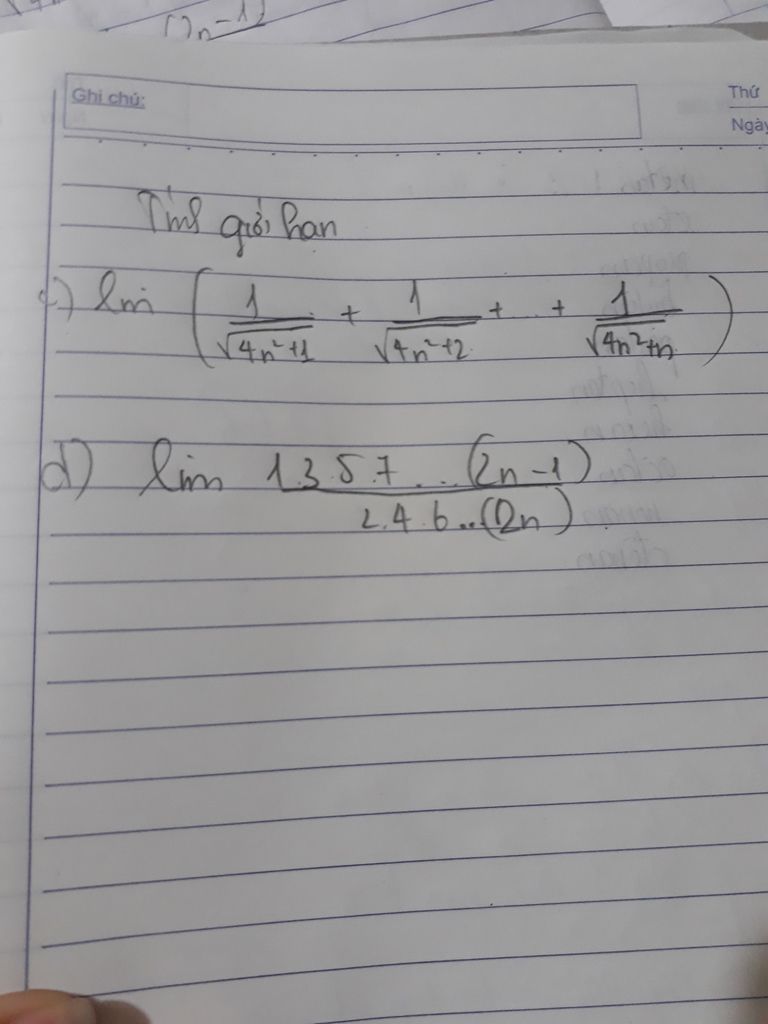 (2n-1)
Ghi chú:
Thứ
Ngày
Tính giới hạn
c) lim ( 1/√(4n²+1) + 1/√(4n²+2) + .. + 1/√(4n²+n) )
d) lim 1.3.5.7...(2n-1) / 2.4.6..(2n)